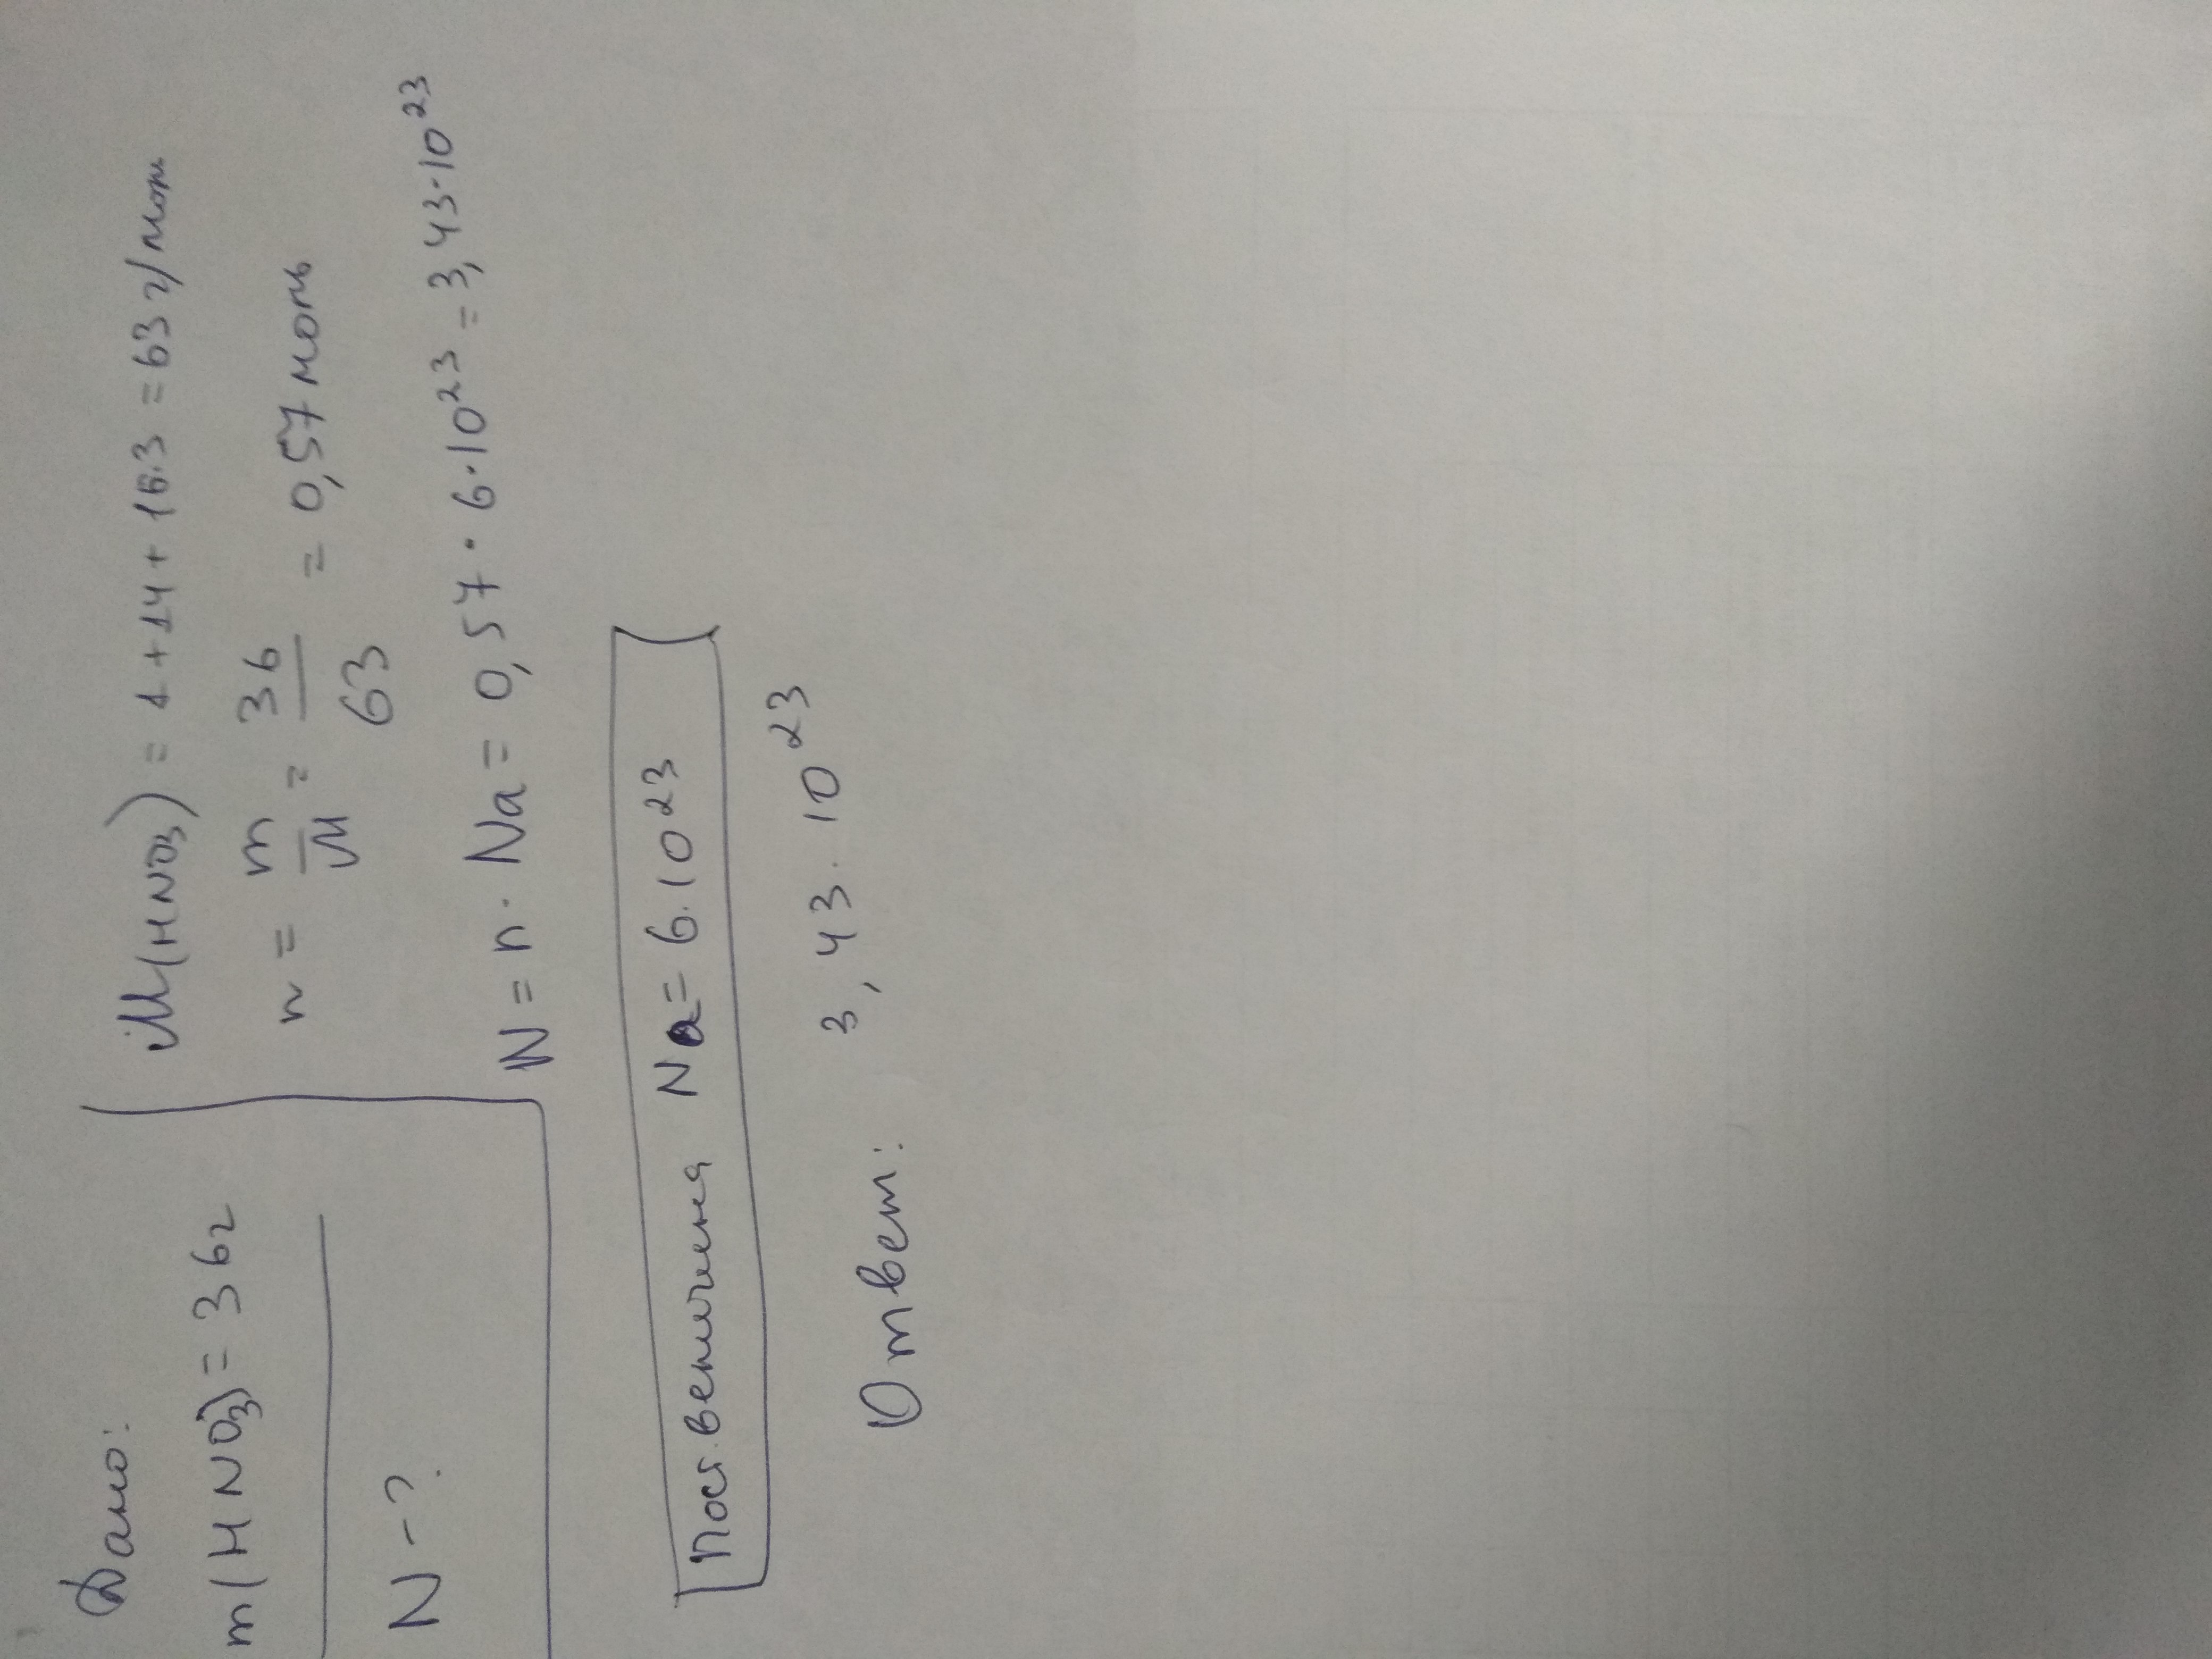 Дано:
m(HNO3)=36г
N-?
M(HNO3) = 1+14+16·3 = 63 г/моль
n = m/M = 36/63 = 0,57 моль
N = n · Na = 0,57 · 6·10²³ = 3,43·10²³
Пост. величина Na = 6·10²³
Ответ: 3,43·10²³